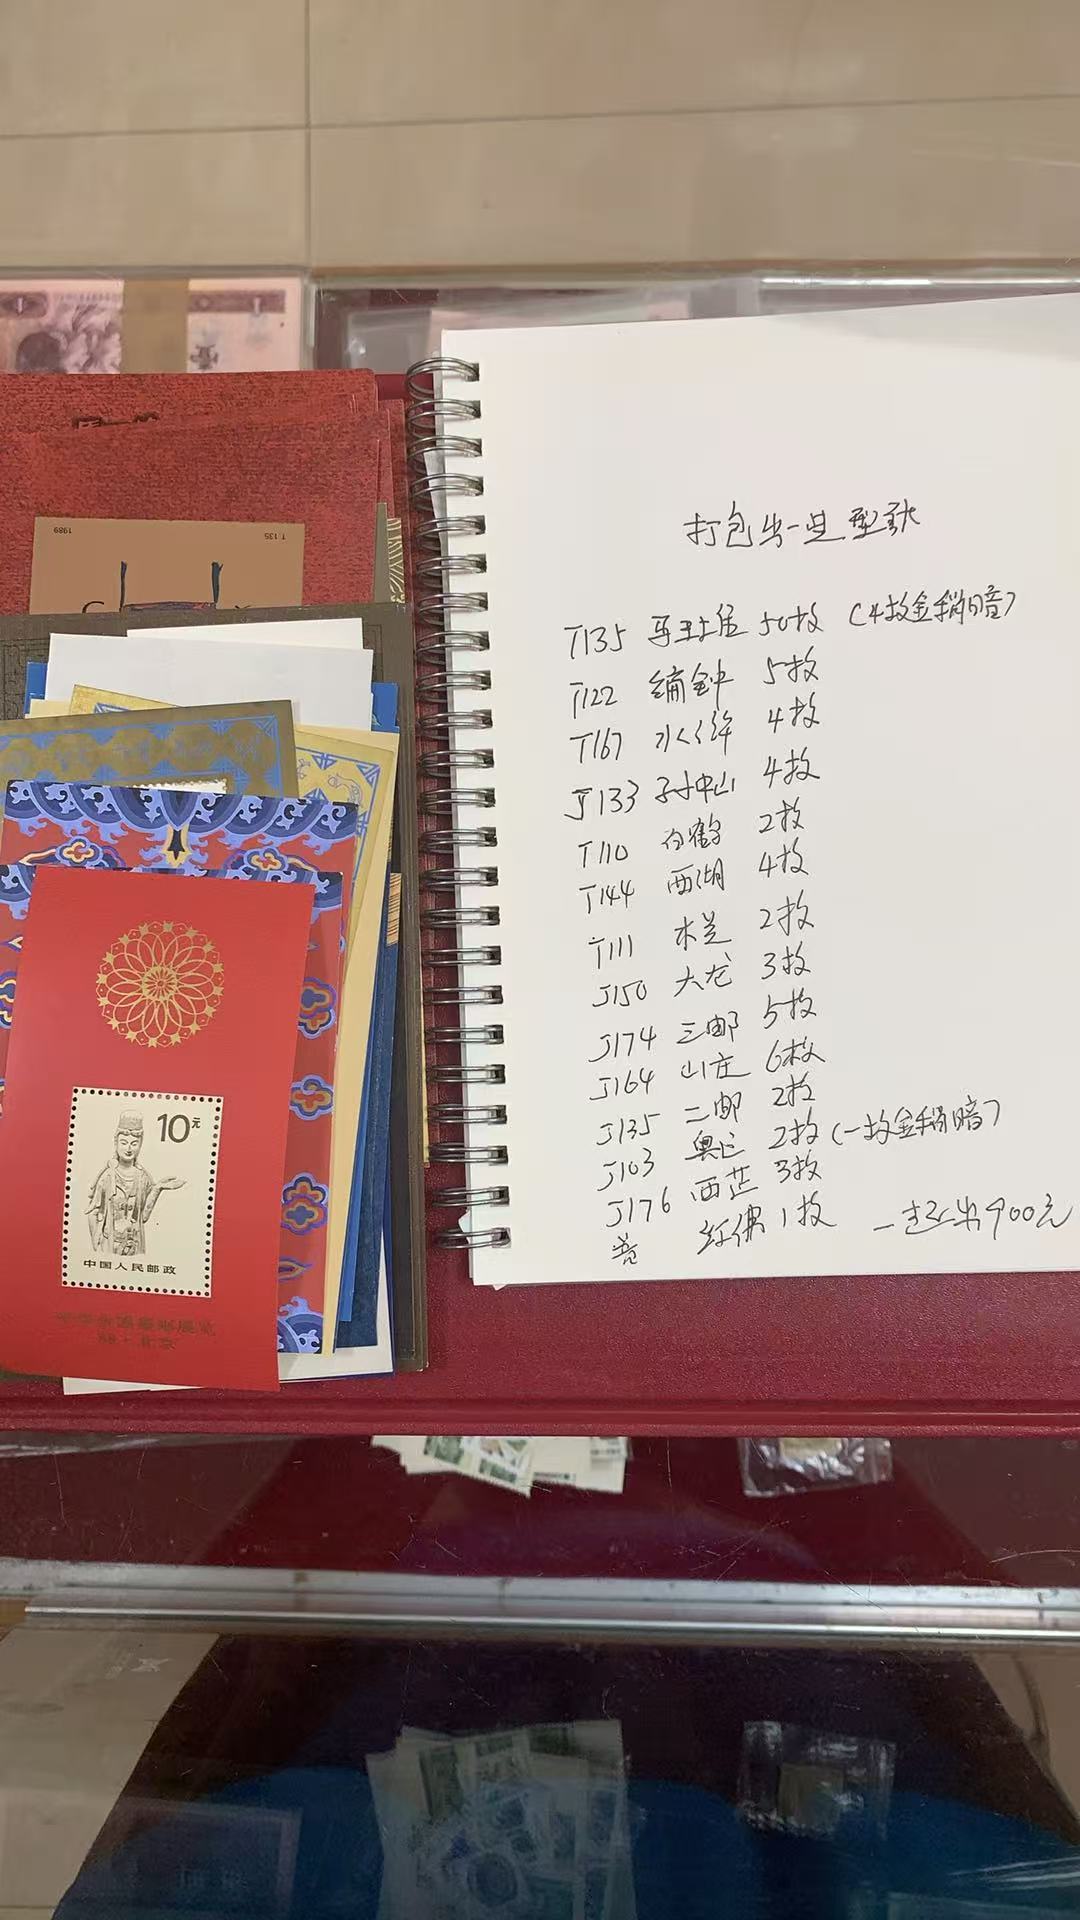 1989
T.135
10元
中国人民邮政
打包出一些型张
T135 马王堆 50枚 (4枚金稍暗)
T122 编钟 5枚
T167 水浒 4枚
J133 孙中山 4枚
T110 白鹤 2枚
T144 西湖 4枚
T111 木兰 2枚
J150 大龙 3枚
J174 三邮 5枚
J164 山庄 6枚
J135 二邮 2枚
J103 奥运 2枚 (一枚金稍暗)
J176 西芷 3枚
普 红佛 1枚 一起出900元